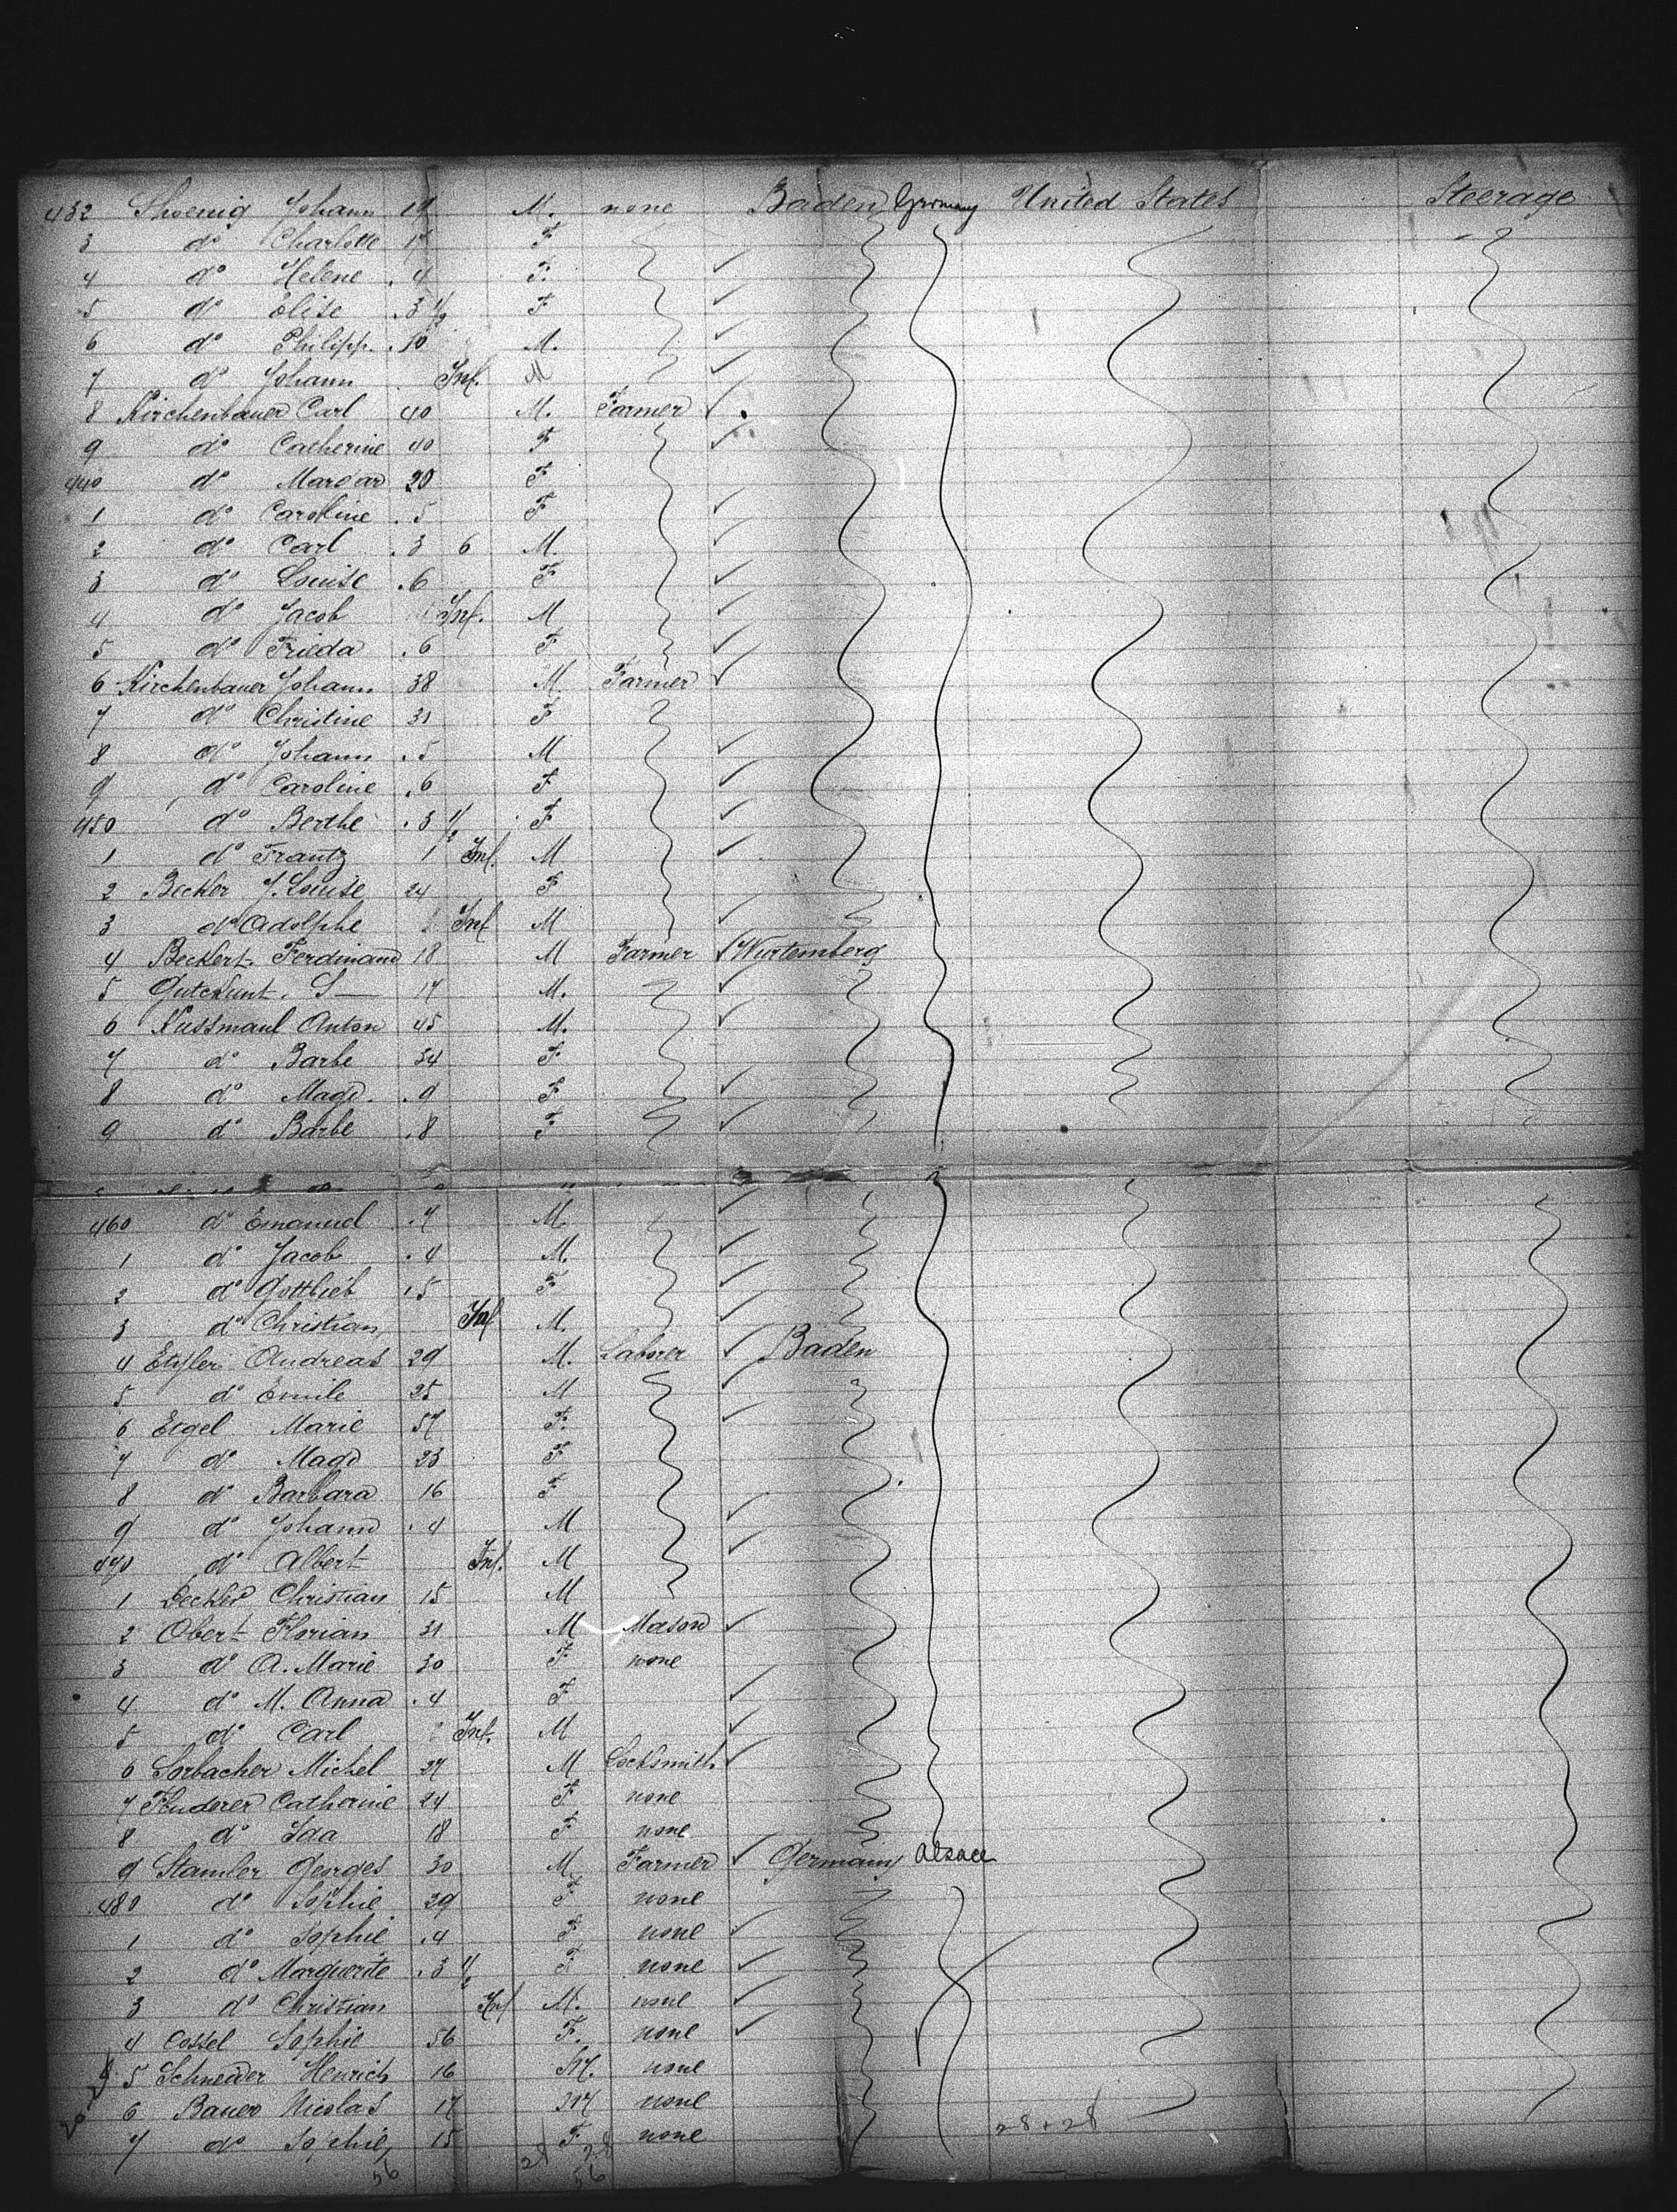 432 Shoenig Johann 19 M. none Baden Germany United States Steerage
3 do Charlotte F
4 do Helene .4 F.
5 do Elise .3 1/2 F
6 do Philipp. .10 M.
7 do Johann Inf. M
8 Kirchenbauer Carl 40 M. Farmer
9 do Catherine 40 F
440 do Margar 20 F
1 do Caroline .5 F
2 do Carl .3 6 M.
3 do Louise .6 F
4 do Jacob Inf. M
5 do Frieda .6 F
6 Kirchenbauer Johann 38 M. Farmer
7 do Christine 31 F
8 do Johann .5 M
9 do Caroline .6 F
450 do Berthe .3 1/2 F
1 do Frantz 1 Inf. M
2 Beckler J. Louise 24 F
3 do Adolphe Inf M
4 Beckert. Ferdinand 18 M Farmer Wurtemberg
5 Gutekunt. S— 17 M.
6 Kussmaul Anton 45 M.
7 do Barbe 34 F
8 do Magd. .9 F
9 do Barbe .8 F
460 do Emanuel .7 M.
1 do Jacob .4 M.
2 do Gottlieb .5 F
3 do Christian Inf M.
4 Andreas 29 M. Laborer Baden
5 do Emile 25 M
6 Eigel Marie 57 F.
7 do Magd 23 F
8 do Barbara 16 F
9 do Johann .4 M
470 do Albert Inf. M
1 Christian 15 M
2 Obert Florian 31 M Mason
3 do A. Marie 30 F none
4 do M. Anna .4 F
5 do Carl Inf. M
6 Sorbacher Michel 27 M Locksmith
7 Fluderer Catherine 24 F none
8 do Ida 18 F none
9 Stamler Georges 30 M. Farmer Germany Alsace
480 do Sophie 29 F none
1 do Sophie .4 F none
2 do Marguerite .3 1/2 F none
3 do Christian Inf M. none
4 Cossel Sophie 56 F. none
5 Schneider Henrich 16 M. none
6 Bauer Nicolas 17 M none
7 do Sophie 15 F none
28 + 28
56 28 28
56